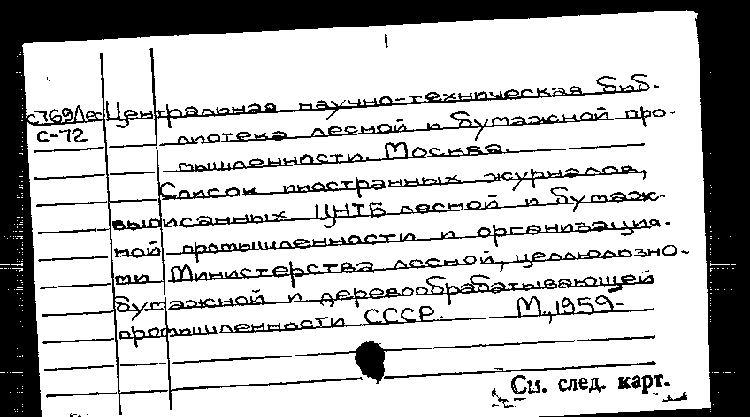 с769/лес Центральная научно-техническая биб-
С-72 лиотека лесной и бумажной про-
мышленности. Москва.
Список иностранных журналов,
выписанных ЦНТБ лесной и бумаж-
ной промышленности и организация-
ми Министерства лесной, целлюлозно-
бумажной и деревообрабатывающей
промышленности СССР. М., 1959-
См. след. карт.